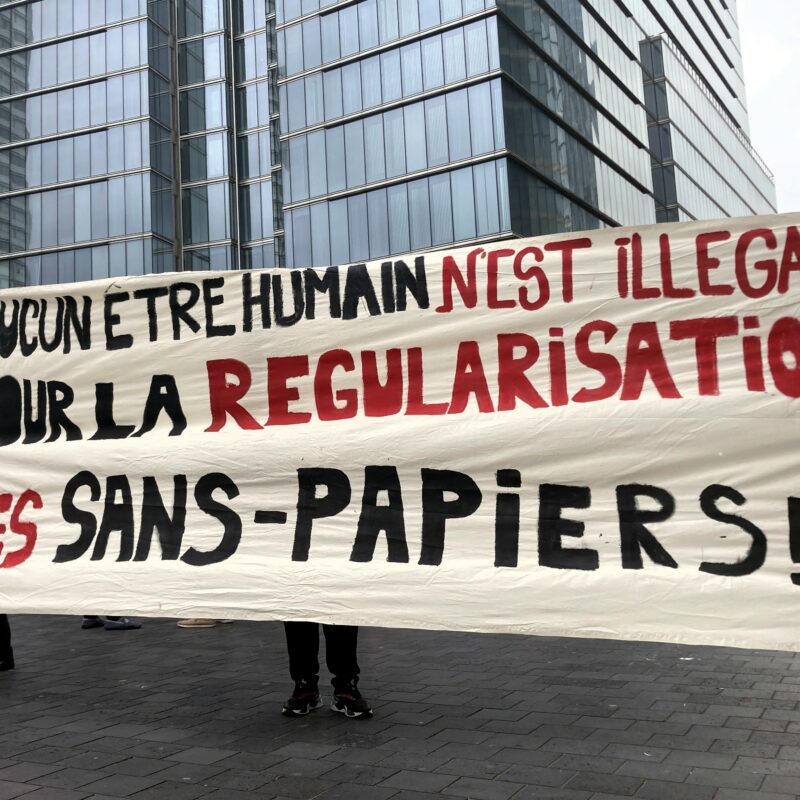 UCUN ETRE HUMAIN N'EST ILLEGA
OUR LA REGULARISATIO
ES SANS-PAPIERS!